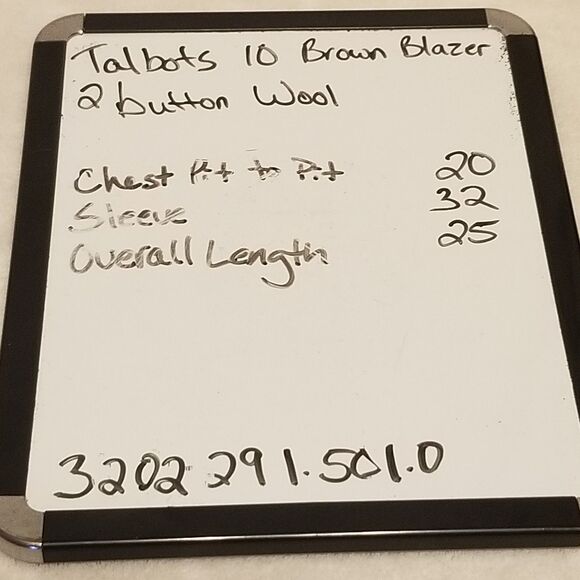 Talbots 10 Brown Blazer
2 button Wool
Chest Pit to Pit 20
Sleeve 32
Overall Length 25
3202 291.501.0